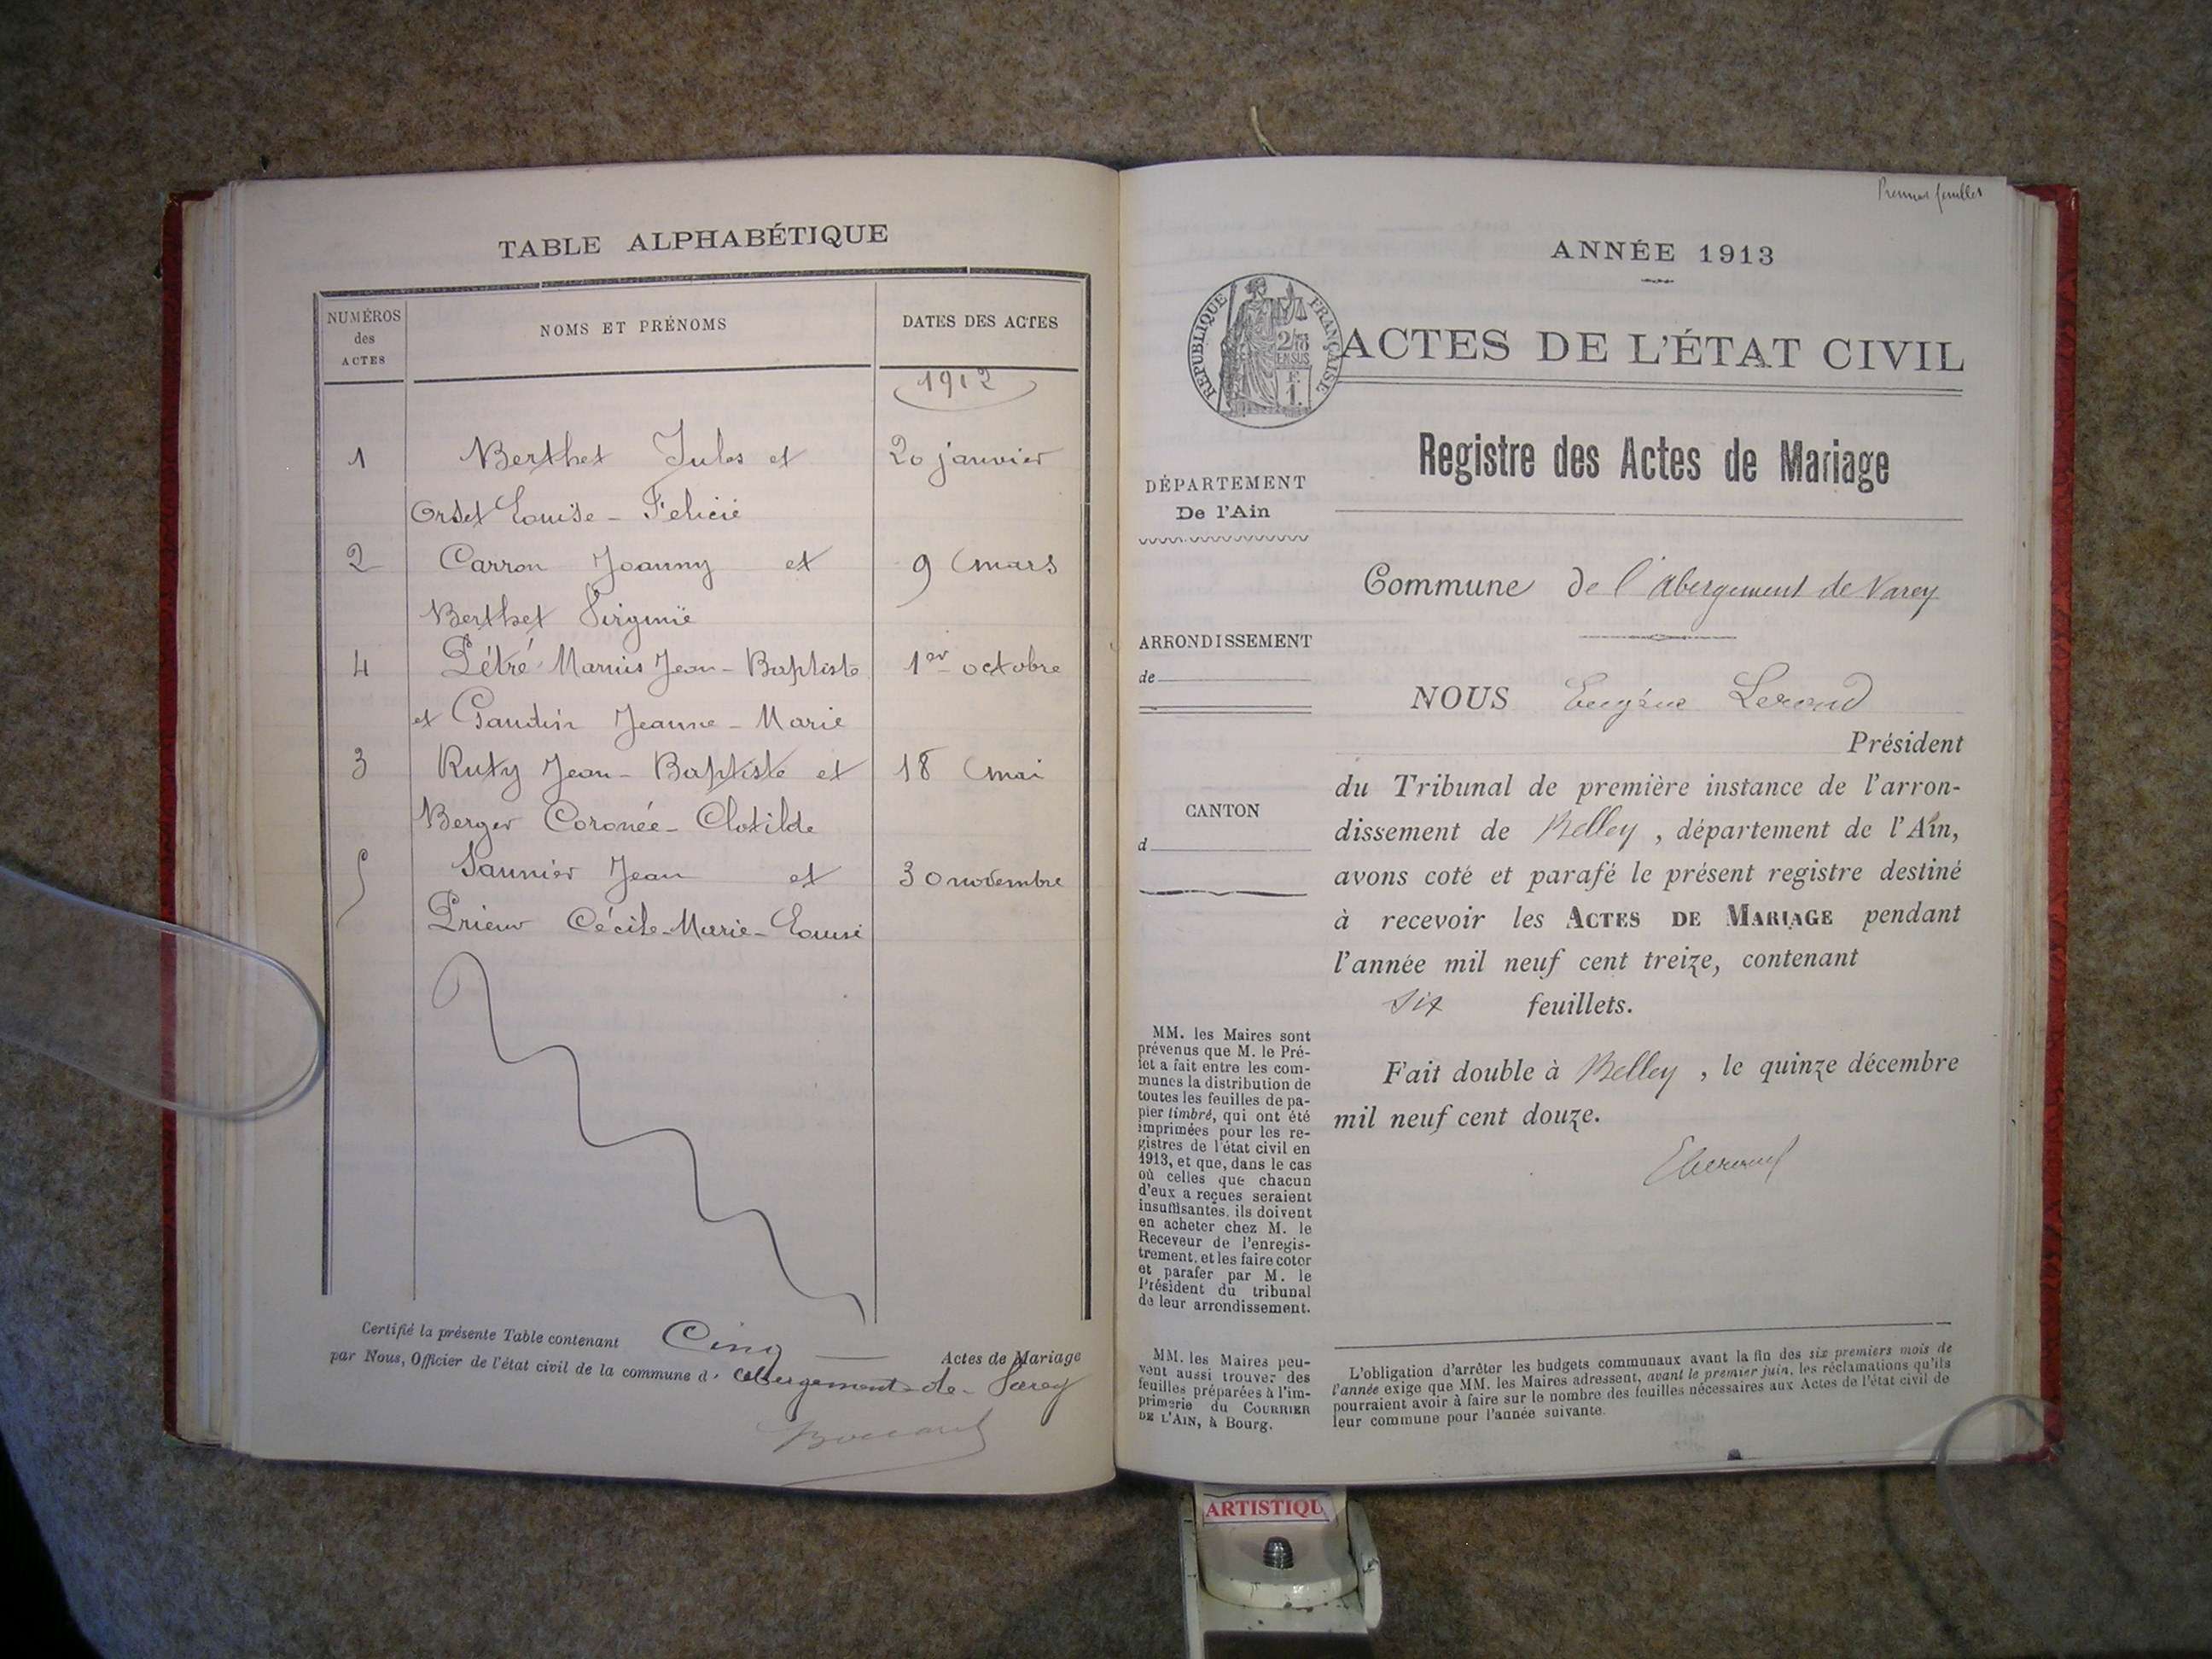 TABLE ALPHABÉTIQUE
NUMÉROS
des
ACTES
NOMS ET PRÉNOMS
DATES DES ACTES
1912
1 Berthet Jules et 20 janvier
Orset Louise - Félicie
2 Carron Joanny et 9 mars
Berthet Virginie
4 Pétré Marius Jean - Baptiste 1er octobre
et Gaudin Jeanne - Marie
3 Ruty Jean - Baptiste et 18 mai
Berger Coronée - Clotilde
5 Saunier Jean et 30 novembre
Prieur Cécile-Marie-Louise
Certifié la présente Table contenant Cinq Actes de Mariage
par Nous, Officier de l'état civil de la commune d' Abergement-de-Varey
ANNÉE 1913
RÉPUBLIQUE FRANÇAISE
ACTES DE L'ÉTAT CIVIL
Registre des Actes de Mariage
DÉPARTEMENT
De l'Ain
Commune de l'Abergement de Varey
ARRONDISSEMENT
de
NOUS Eugène
Président
du Tribunal de première instance de l'arron-
dissement de Belley, département de l'Ain,
avons coté et parafé le présent registre destiné
à recevoir les ACTES DE MARIAGE pendant
l'année mil neuf cent treize, contenant
six feuillets.
Fait double à Belley, le quinze décembre
mil neuf cent douze.
CANTON
d
MM. les Maires sont
prévenus que M. le Pré-
fet a fait entre les com-
munes la distribution de
toutes les feuilles de pa-
pier timbré, qui ont été
imprimées pour les re-
gistres de l'état civil en
1913, et que, dans le cas
où celles que chacun
d'eux a reçues seraient
insuffisantes, ils doivent
en acheter chez M. le
Receveur de l'enregis-
trement, et les faire coter
et parafer par M. le
Président du tribunal
de leur arrondissement.
MM. les Maires peu-
vent aussi trouver des
feuilles préparées à l'im-
primerie du COURRIER
DE L'AIN, à Bourg.
L'obligation d'arrêter les budgets communaux avant la fin des six premiers mois de
l'année exige que MM. les Maires adressent, avant le premier juin, les réclamations qu'ils
pourraient avoir à faire sur le nombre des feuilles nécessaires aux Actes de l'état civil de
leur commune pour l'année suivante.
ARTISTIQU